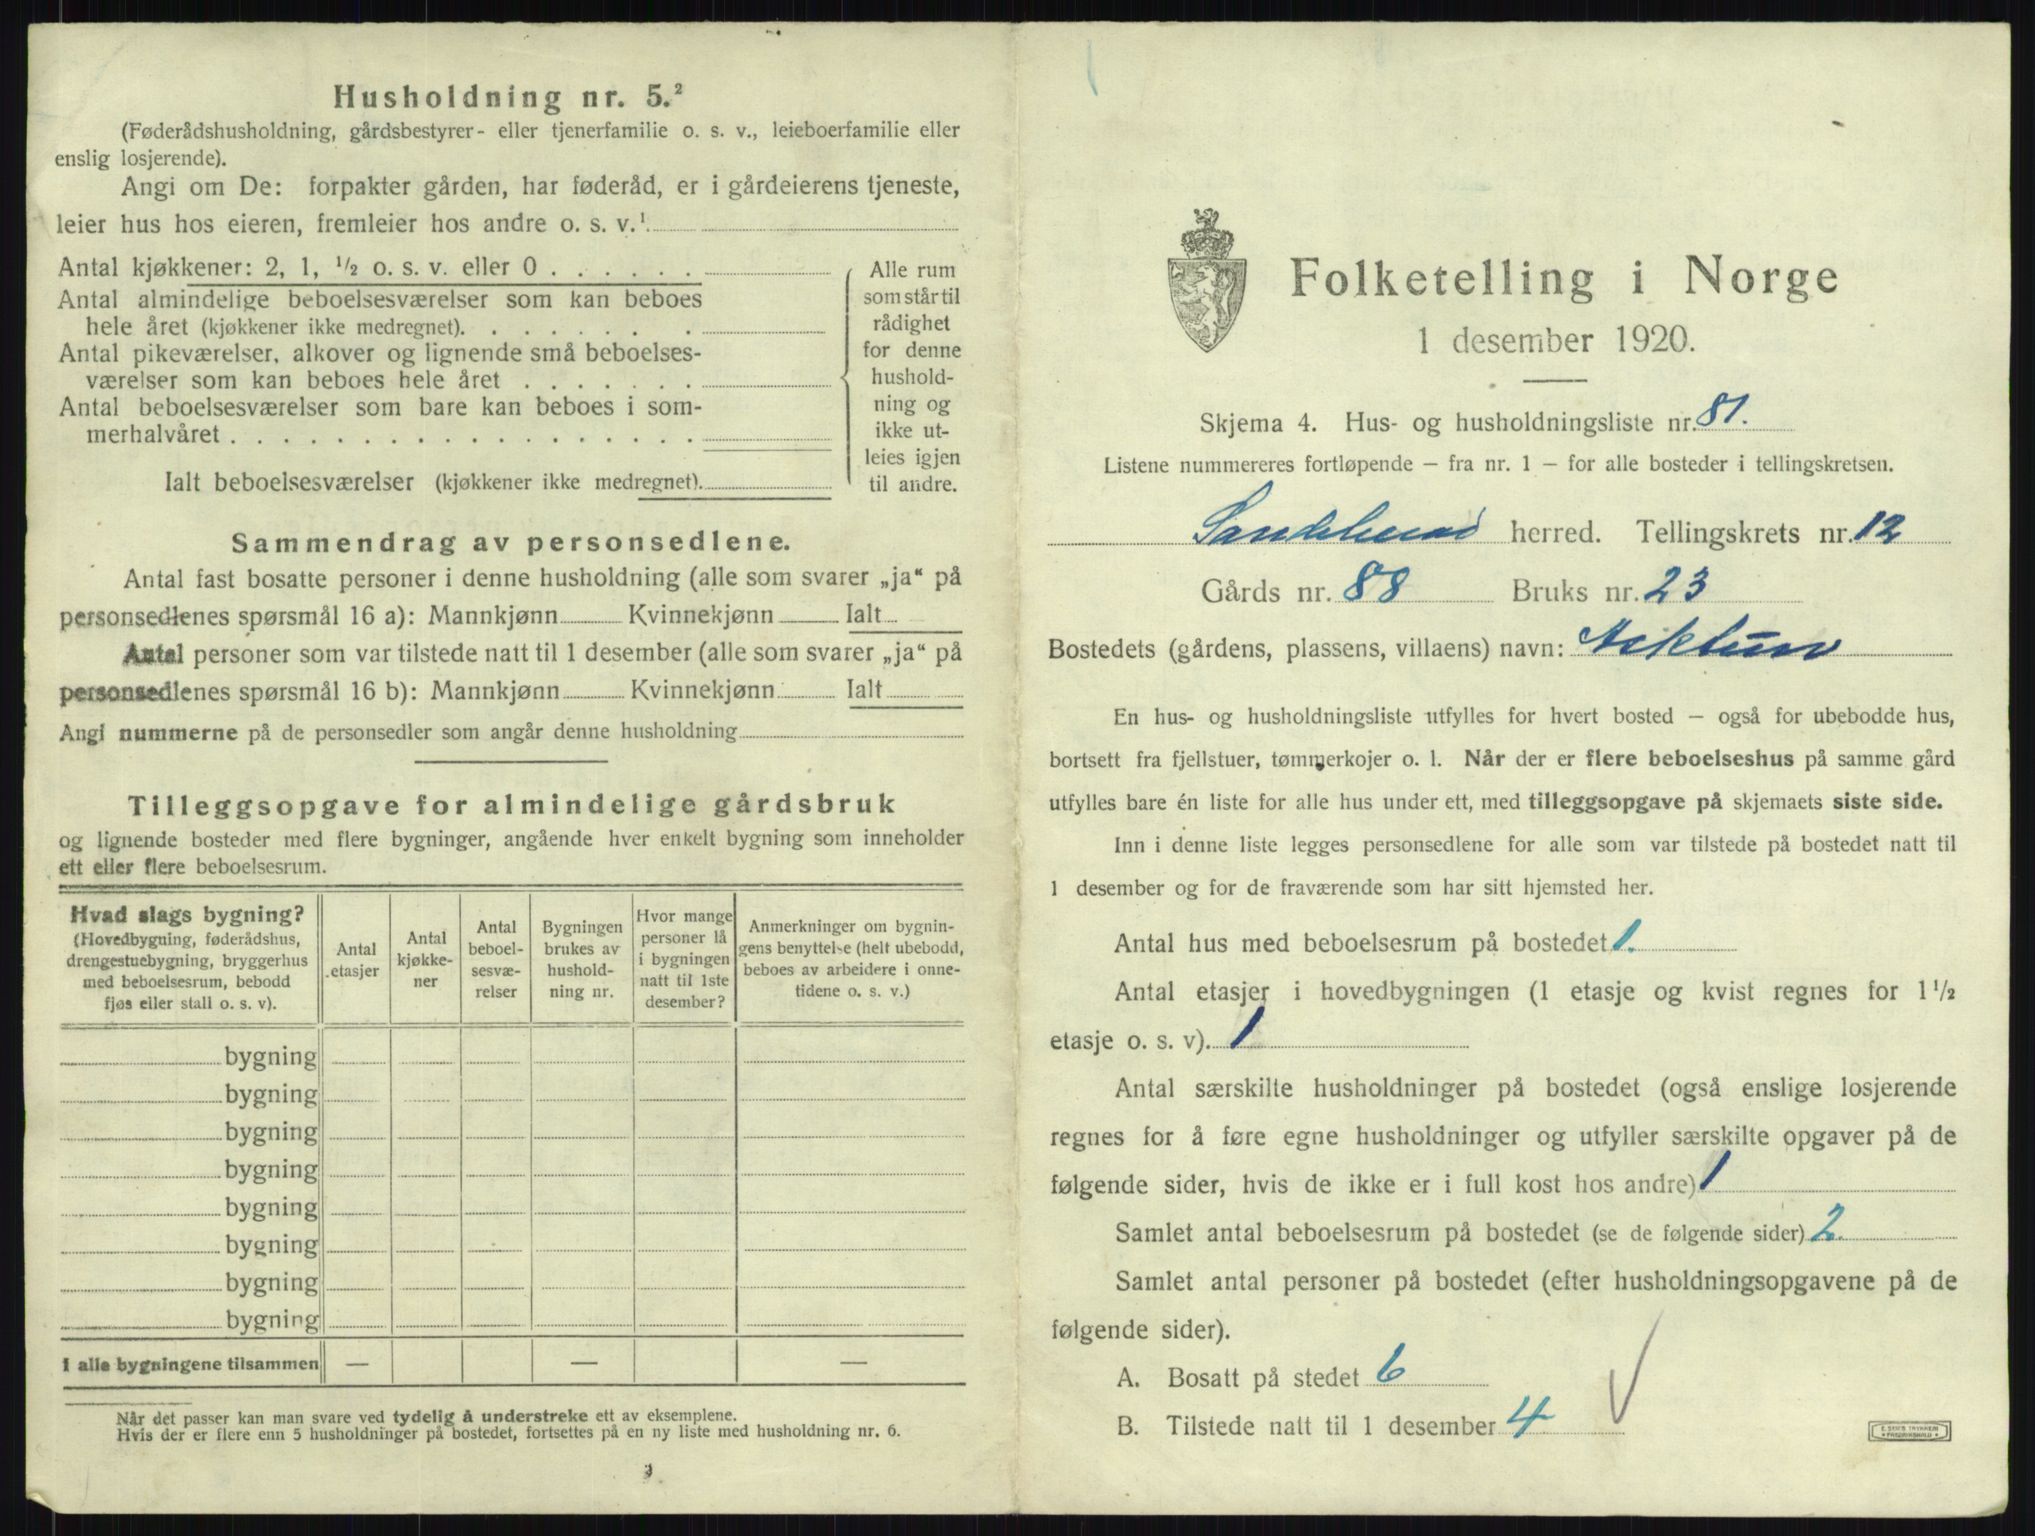 Husholdning nr. 5.²
(Føderådshusholdning, gårdsbestyrer- eller tjenerfamilie o. s. v., leieboerfamilie eller
enslig losjerende).
Angi om De: forpakter gården, har føderåd, er i gårdeierens tjeneste,
leier hus hos eieren, fremleier hos andre o. s. v.¹
Antal kjøkkener: 2, 1, ¹/₂ o. s. v. eller 0 . . . . . .
Antal almindelige beboelsesværelser som kan beboes
hele året (kjøkkener ikke medregnet). . . . . . . . .
Antal pikeværelser, alkover og lignende små beboelses-
værelser som kan beboes hele året . . . . . . .
Antal beboelsesværelser som bare kan beboes i som-
merhalvåret . . . . . . . . . . . . . . . . . .
Ialt beboelsesværelser (kjøkkener ikke medregnet).
Alle rum
som står til
rådighet
for denne
hushold-
ning og
ikke ut-
leies igjen
til andre.
Sammendrag av personsedlene.
Antal fast bosatte personer i denne husholdning (alle som svarer „ja“ på
personsedlenes spørsmål 16 a): Mannkjønn Kvinnekjønn Ialt
Antal personer som var tilstede natt til 1 desember (alle som svarer „ja“ på
personsedlenes spørsmål 16 b): Mannkjønn Kvinnekjønn Ialt
Angi nummerne på de personsedler som angår denne husholdning
Tilleggsopgave for almindelige gårdsbruk
og lignende bosteder med flere bygninger, angående hver enkelt bygning som inneholder
ett eller flere beboelsesrum.
Hvad slags bygning?
(Hovedbygning, føderådshus,
drengestuebygning, bryggerhus
med beboelsesrum, bebodd
fjøs eller stall o. s. v).
Antal
etasjer
Antal
kjøkke-
ner
Antal
beboel-
sesvæ-
relser
Bygningen
brukes av
hushold-
ning nr.
Hvor mange
personer lå
i bygningen
natt til 1ste
desember?
Anmerkninger om bygnin-
gens benyttelse (helt ubebodd,
beboes av arbeidere i onne-
tidene o. s. v.)
bygning
bygning
bygning
bygning
bygning
bygning
bygning
bygning
I alle bygningene tilsammen — — —
Når det passer kan man svare ved tydelig å understreke ett av eksemplene.
Hvis der er flere enn 5 husholdninger på bostedet, fortsettes på en ny liste med husholdning nr. 6.
Folketelling i Norge
1 desember 1920.
Skjema 4. Hus- og husholdningsliste nr. 81.
Listene nummereres fortløpende – fra nr. 1 – for alle bosteder i tellingskretsen.
Sandeherred herred. Tellingskrets nr. 12
Gårds nr. 88 Bruks nr. 23
Bostedets (gårdens, plassens, villaens) navn: Asklund
En hus- og husholdningsliste utfylles for hvert bosted – også for ubebodde hus,
bortsett fra fjellstuer, tømmerkojer o. l. Når der er flere beboelseshus på samme gård
utfylles bare én liste for alle hus under ett, med tilleggsopgave på skjemaets siste side.
Inn i denne liste legges personsedlene for alle som var tilstede på bostedet natt til
1 desember og for de fraværende som har sitt hjemsted her.
Antal hus med beboelsesrum på bostedet 1.
Antal etasjer i hovedbygningen (1 etasje og kvist regnes for 1¹/₂
etasje o. s. v). 1
Antal særskilte husholdninger på bostedet (også enslige losjerende
regnes for å føre egne husholdninger og utfyller særskilte opgaver på de
følgende sider, hvis de ikke er i full kost hos andre) 1
Samlet antal beboelsesrum på bostedet (se de følgende sider) 2.
Samlet antal personer på bostedet (efter husholdningsopgavene på de
følgende sider).
A. Bosatt på stedet 6
B. Tilstede natt til 1 desember 4